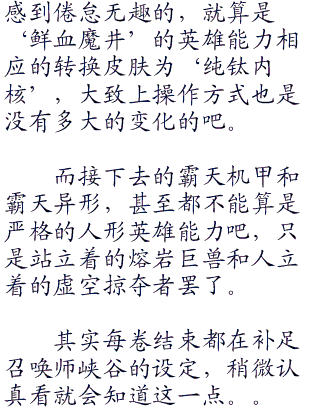 感到倦怠无趣的，就算是
‘鲜血魔井’的英雄能力相
应的转换皮肤为‘纯钛内
核’，大致上操作方式也是
没有多大的变化的吧。
而接下去的霸天机甲和
霸天异形，甚至都不能算是
严格的人形英雄能力吧，只
是站立着的熔岩巨兽和人立
着的虚空掠夺者罢了。
其实每卷结束都在补足
召唤师峡谷的设定，稍微认
真看就会知道这一点。。